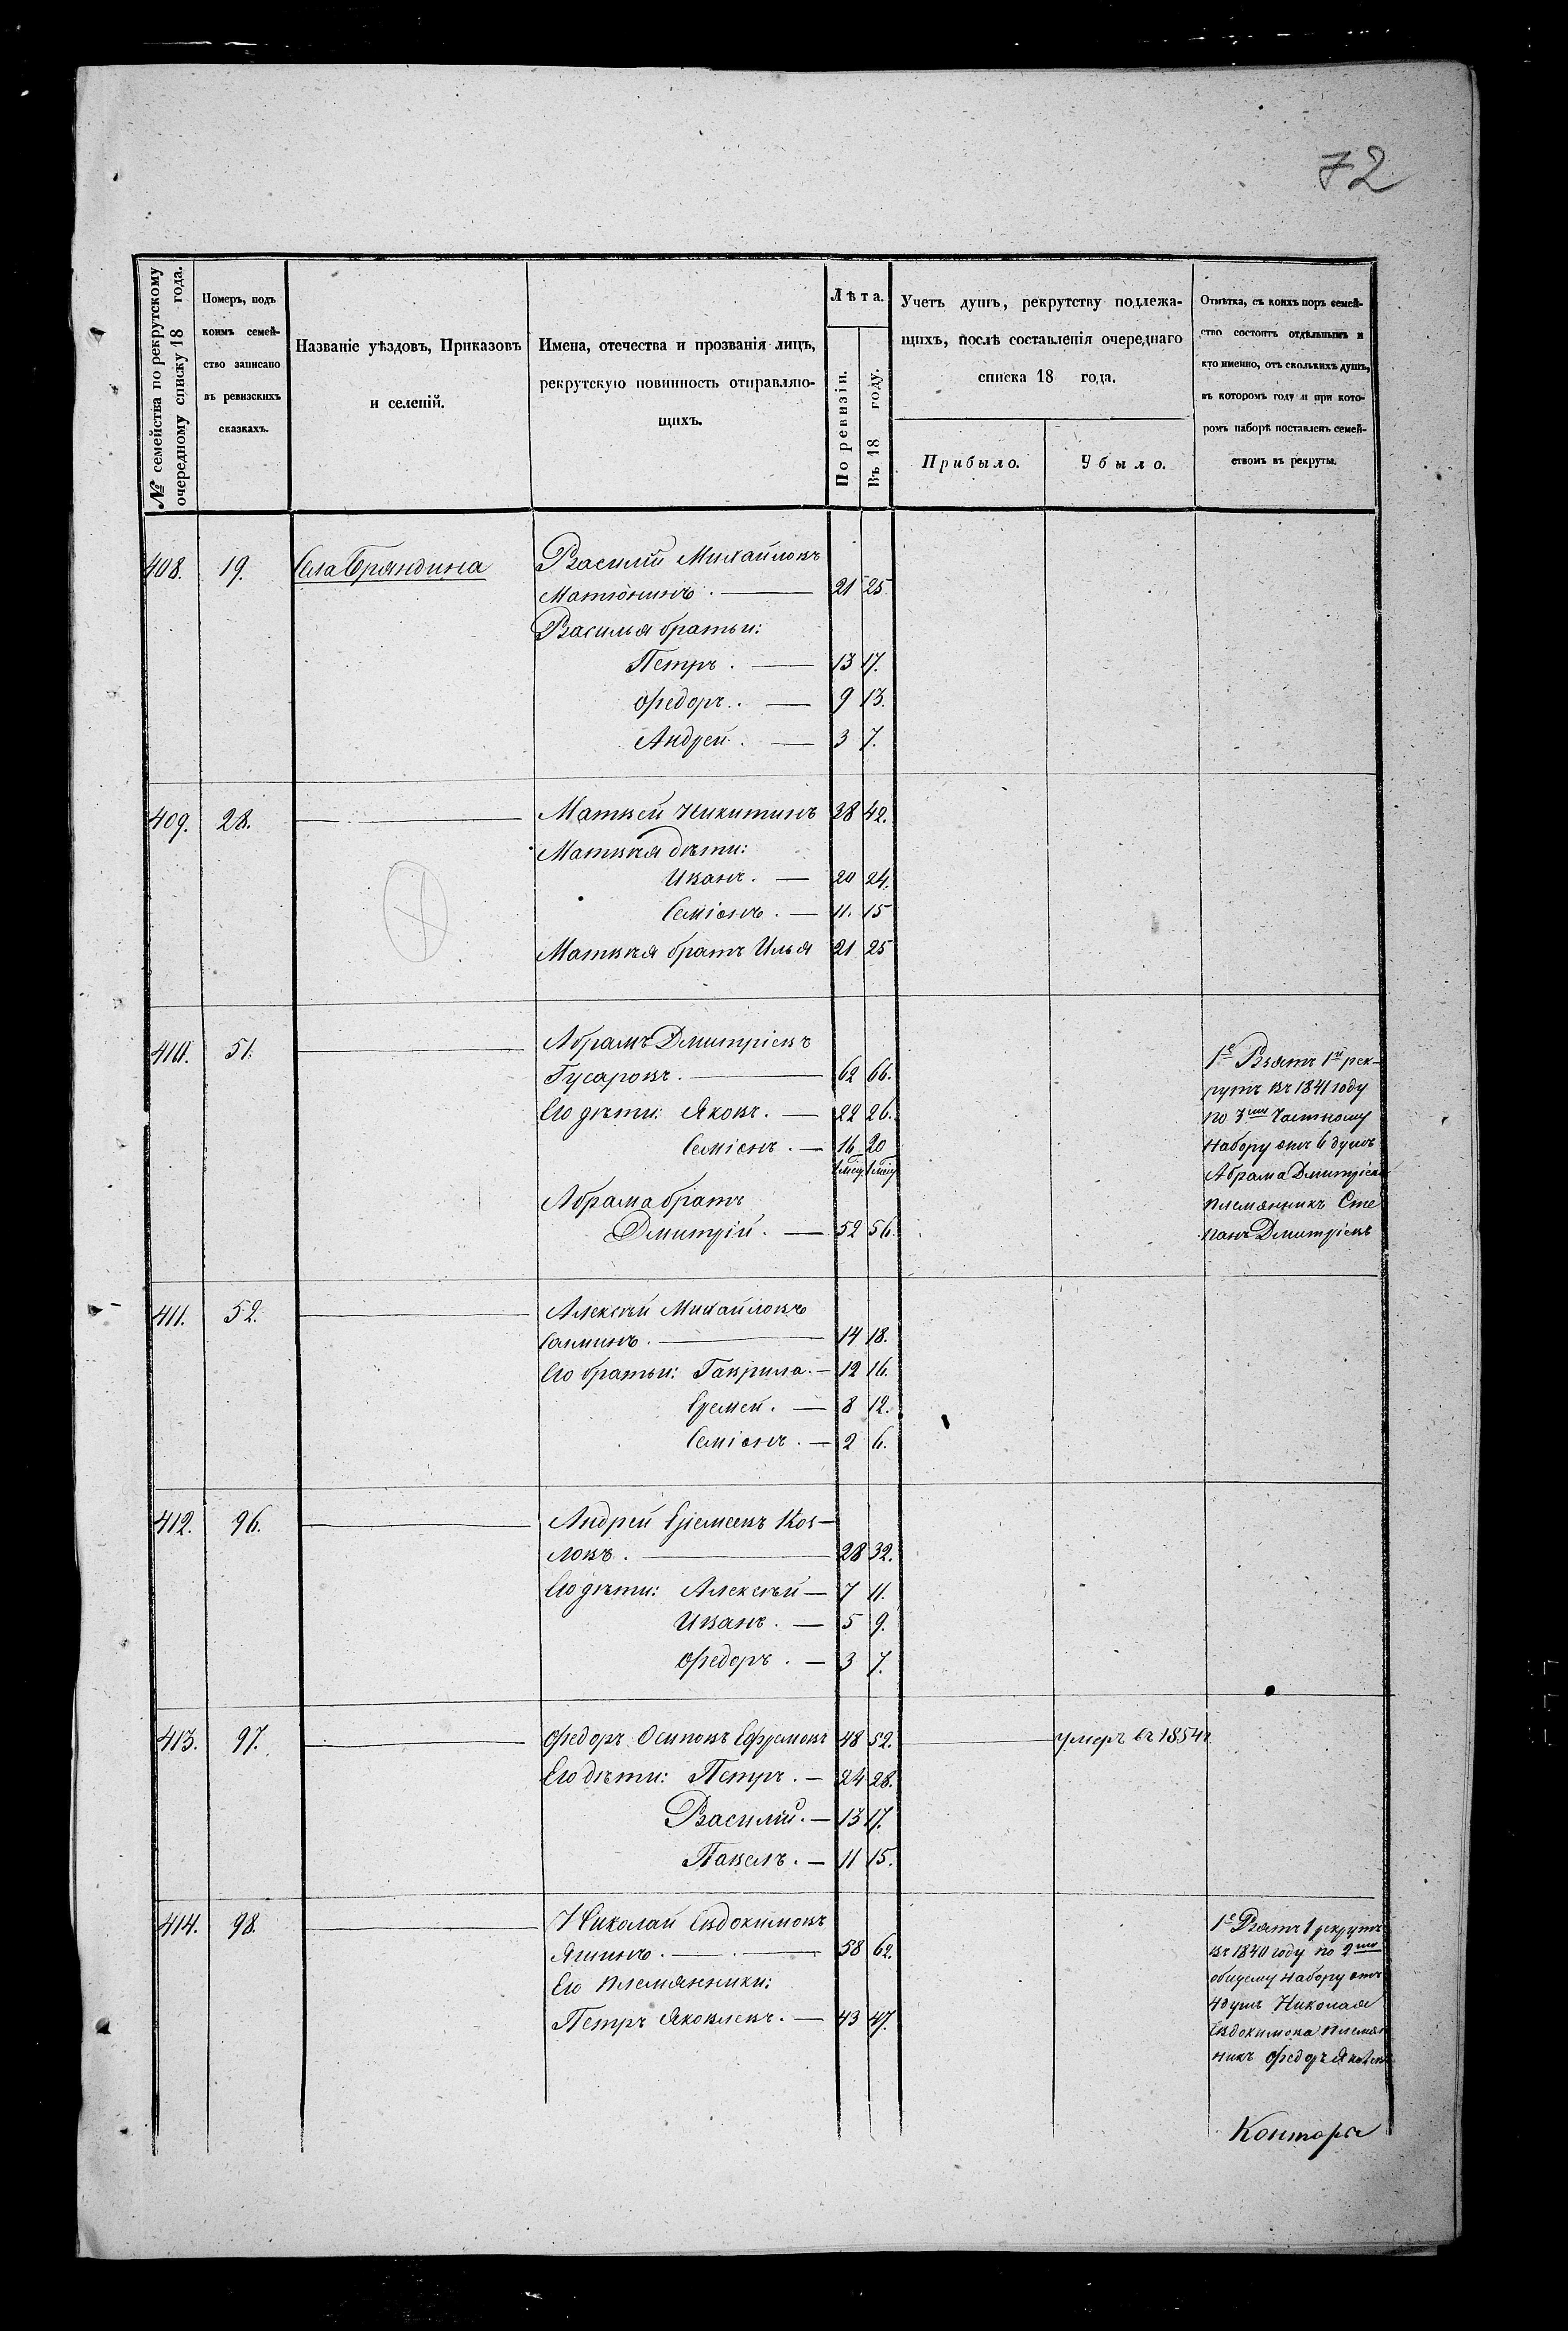 72
№ семейства по рекрутскому очередному списку 18 года.
Номеръ, подъ коимъ семейство записано въ ревизскихъ сказкахъ.
Названіе уѣздовъ, Приказовъ и селеній.
Имена, отечества и прозванія лицъ, рекрутскую повинность отправляющихъ.
Лѣта.
По ревизіи.
Въ 18 году.
Учетъ душъ, рекрутству подлежащихъ, послѣ составленія очереднаго списка 18 года.
Прибыло.
Убыло.
Отмѣтка, съ коихъ поръ семейство состоитъ отдѣльнымъ и кто именно, отъ сколькихъ душъ, въ которомъ году и при которомъ наборѣ поставленъ семействомъ въ рекруты.
408. 19. Села Бряндина Василій Михайловъ
Матюнинъ. 21 25
Василья братьи:
Петръ. 13 17.
Федоръ. 9 13.
Андрей. 3 7.
409. 28. Матвей Никитинъ 38 42.
Матвѣя дѣти:
Иванъ. 20 24.
Семіонъ. 11. 15
Матвѣя братъ Илья 21 25
410. 51. Абрамъ Дмитріевъ
Гусаровъ. 62 66.
Его дѣти: Яковъ. 22 26.
Семіонъ. 16 20
Абрама братъ
Дмитрій. 52 56.
1е Взятъ 1й рек-
рутъ въ 1841 году
по 3му Частному
набору отъ 6 душъ
Абрама Дмитріева
племянникъ Сте
панъ Дмитріевъ
411. 52. Алексѣй Михайловъ
Салминъ. 14 18.
Его братьи: Гаврила. 12 16.
Еремей. 8 12.
Семіонъ. 2 6.
412. 96. Андрей Еремеевъ Коз-
ловъ. 28 32.
Его дѣти: Алексѣй 7 11.
Иванъ. 5 9.
Федоръ. 3 7.
413. 97. Федоръ Осиповъ Ефремовъ 48 52. умеръ въ 1854 г
Его дѣти: Петръ. 24 28.
Василій. 13 17.
Павелъ. 11 15.
414. 98. Николай Евдокимовъ
Яшинъ. 58 62.
Его племянники:
Петръ Яковлевъ. 43 47.
1е Взятъ 1 рекрутъ
въ 1840 году по 2му
общему набору отъ
4 душъ Николая
Евдокимова племян
никъ Федоръ Яковлев
Контора